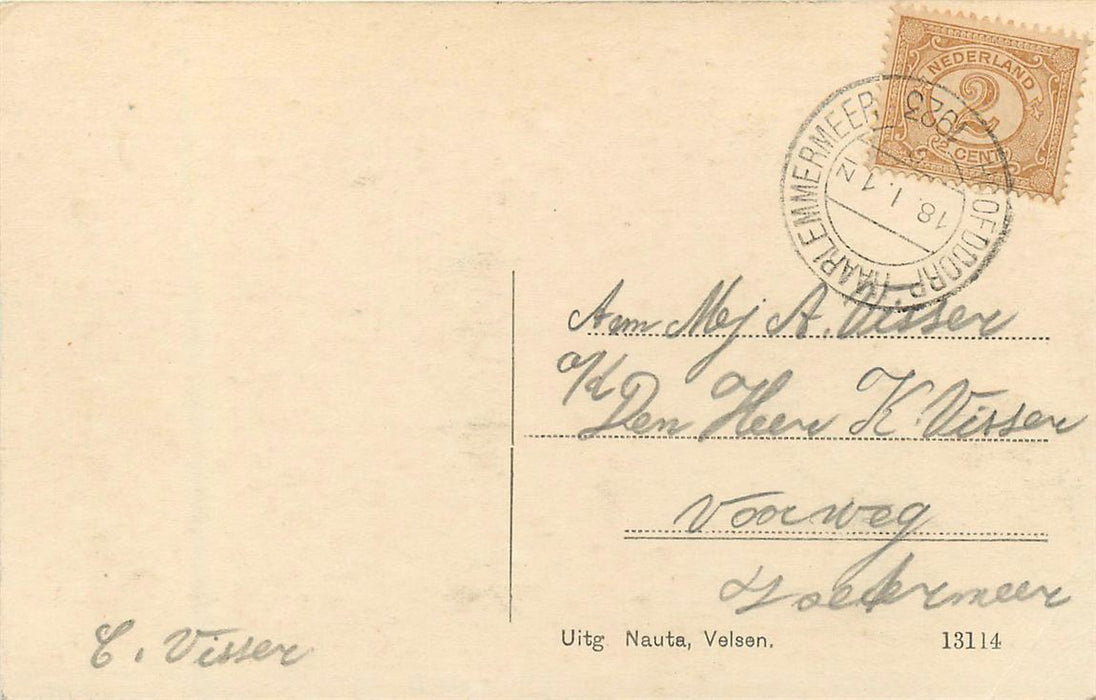 NEDERLAND
2
2 CENT
HOOFDDORP (HAARLEMMERMEER)
18.1.1 N
1923
Aan Mej A. Visser
p/a Den Heer K. Visser
Voorweg
Zoetermeer
C. Visser
Uitg Nauta, Velsen.
13114